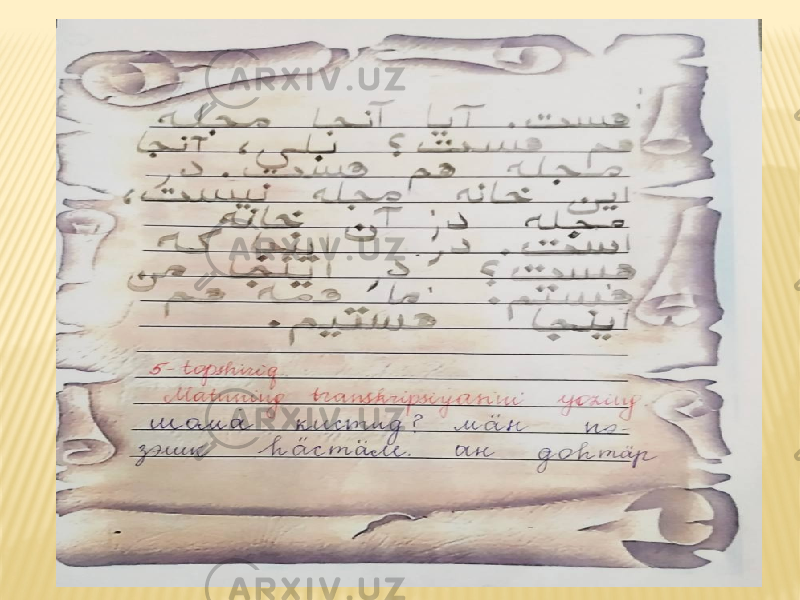 ARXIV.UZ
هست. آیا آنجا مجله
هم هست؟ بلی، آنجا
مجله هم هست. در
این خانه مجله نیست،
مجله در آن خانه
است. در اینجا که
هست؟ در اینجا من
هستم. ما همه هم
اینجا هستیم.
5-topshiriq
Matnning transkripsiyasini yozing
шома̄ кистид? мӓн пе-
зэшк hӓстӓм. ан доhтӓр
ARXIV.UZ
ARXIV.UZ
ARXIV.UZ